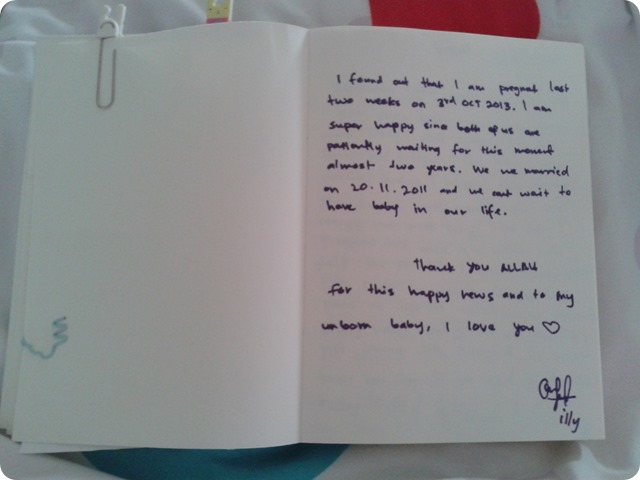 I found out that I am pregnat last
two weeks on 3rd OCT 2013. I am
super happy sinc both of us are
patiently waiting for this moment
almost two years. We we married
on 20.11.2011 and we cant wait to
have baby in our life.
Thank you ALLAH
for this happy news and to my
unborn baby, I love you ♡
illy